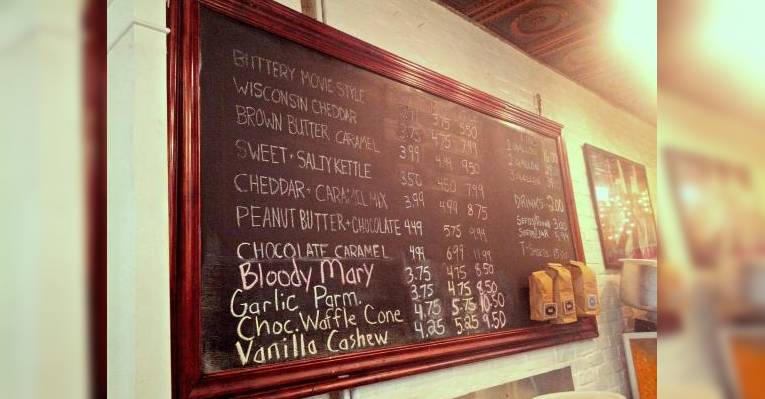 BUTTERY MOVIE STYLE 3.75 5.50
WISCONSIN CHEDDAR 3.75 4.75 7.99
BROWN BUTTER CARAMEL 3.99 4.99 9.50
SWEET + SALTY KETTLE 3.50 4.50 7.99
CHEDDAR + CARAMEL MIX 3.99 4.99 8.75
PEANUT BUTTER + CHOCOLATE 4.49 5.75 9.99
CHOCOLATE CARAMEL 4.99 6.99 11.99
Bloody Mary 3.75 4.75 8.50
Garlic Parm. 3.75 4.75 8.50
Choc. Waffle Cone 4.75 5.75 10.50
Vanilla Cashew 4.25 5.25 9.50
1 GALLON
2 GALLON
3 GALLON
DRINKS 2.00
3.00
T-SHIRTS